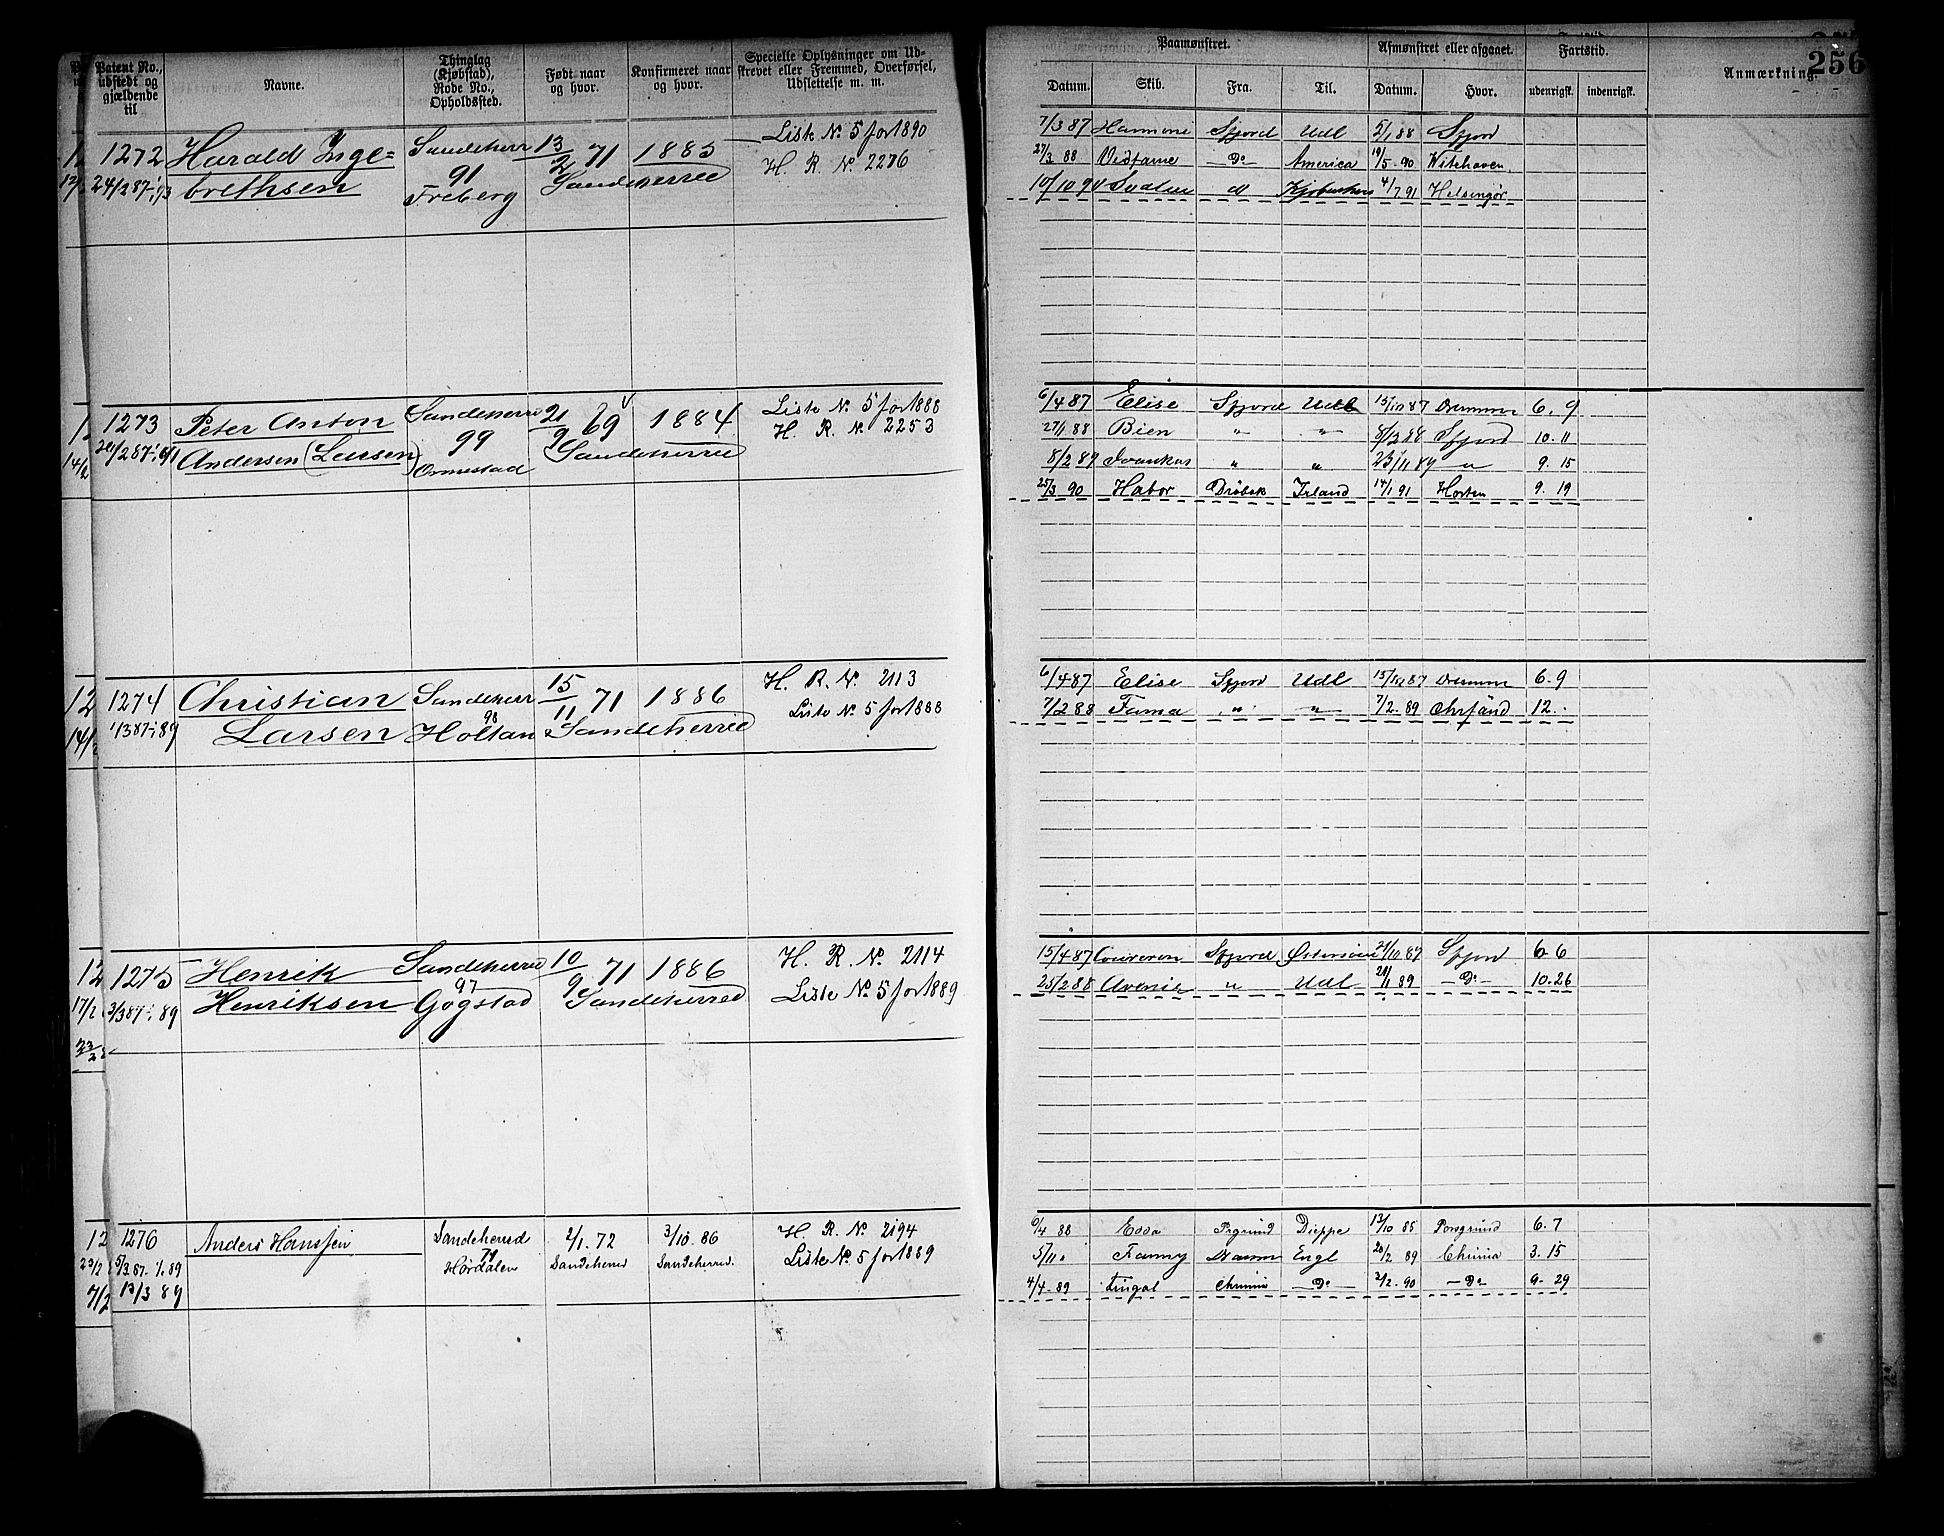 256
Patent No., udstedt og gjældende til
Navne.
Thinglag (Kjøbstad), Rode No., Opholdssted.
Født naar og hvor.
Konfirmeret naar og hvor.
Specielle Oplysninger om Udskrevet eller Fremmed, Overførsel, Udslettelse m. m.
Paamønstret.
Afmønstret eller afgaaet.
Fartstid.
Anmærkning.
Datum. Skib. Fra. Til. Datum. Hvor. udenrigsk. indenrigsk.
1272 Harald Inge= Sandeherr 13/2 71 1885 Liste No 5 for 1890
brethsen 91 Sandeherred H. R. No. 2276
Freberg
7/3 87 Sfjord Udl 5/1 88 Sfjord
27/3 88 Vidfarne Do America 19/5-90 Witehaven
10/10 90 4/7 91 Helsingør
1273 Peter Anton Sandeherred 21/9 69 1884 Liste No. 5 for 1888
Andersen (Larsen) 99 Sandeherred H. R. No. 2253
Ormestad
6/4 87 Elise Sfjord Udl 15/10 87 Drammn 6. 9
27/1 88 Bien " " 8/12 88 Sfjord 10. 11
8/2 89 " " 23/11 89 " 9. 15
25/3 90 Habor Drøbak Irland 14/1 91 Horten 9. 19
1274 Christian Sandeherr 15/11 71 1886 H. R. No. 2113
1/3 87-1/1 89 Larsen 98 Holtan Sandeherred Liste No. 5 for 1888
6/4 87 Elise Sfjord Udl 15/10 87 Drammn 6. 9
7/2 88 Fama " " 7/2 89 Chrsand 12.
1275 Henrik Sandeherred 10/9 71 1886 H. R. No. 2114
Henriksen 97 Gogstad Sandeherred Liste No. 5 for 1889
15/4 87 Sfjord 21/10 87 Sfjord 6 6
25/2 88 " Udl 20/11 89 Do 10. 26
1276 Anders Hanssen Sandeherred 2/1. 72 3/10. 86 H. R. No. 2194
79 Hørdalen Sandeherred Sandeherred. Liste No. 5 for 1889
13/3 89
6/4 88 Edda Prgrund Dieppe 13/10 85 Porsgrund 6. 7
5/11 Fanny Engl 20/2 89 Chrinia 3. 15
4/4-89 Chrinia Do 2/2-90 Do 9- 29